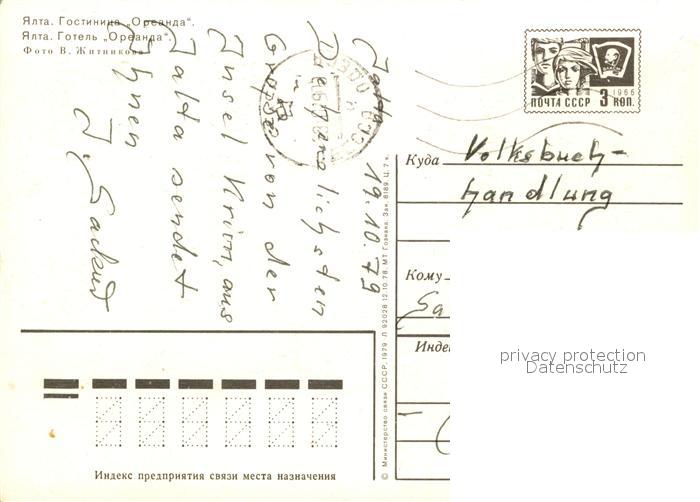 Ялта. Гостиница „Ореанда“.
Ялта. Готель „Ореанда“.
Фото В. Житникова
Jalta 19.10.79
Die herzlichsten
Grüße von der
Insel Krim, aus
Jalta sendet
Ihnen
J.
1966
ПОЧТА СССР 3 КОП.
Куда Volksbuch-
handlung
Кому
Sa
Инде
privacy protection
Datenschutz
Индекс предприятия связи места назначения
© Министерство связи СССР, 1979 Л 92028 12.10.78. МТ Гознака. Зак. 8189. Ц. 7 к.